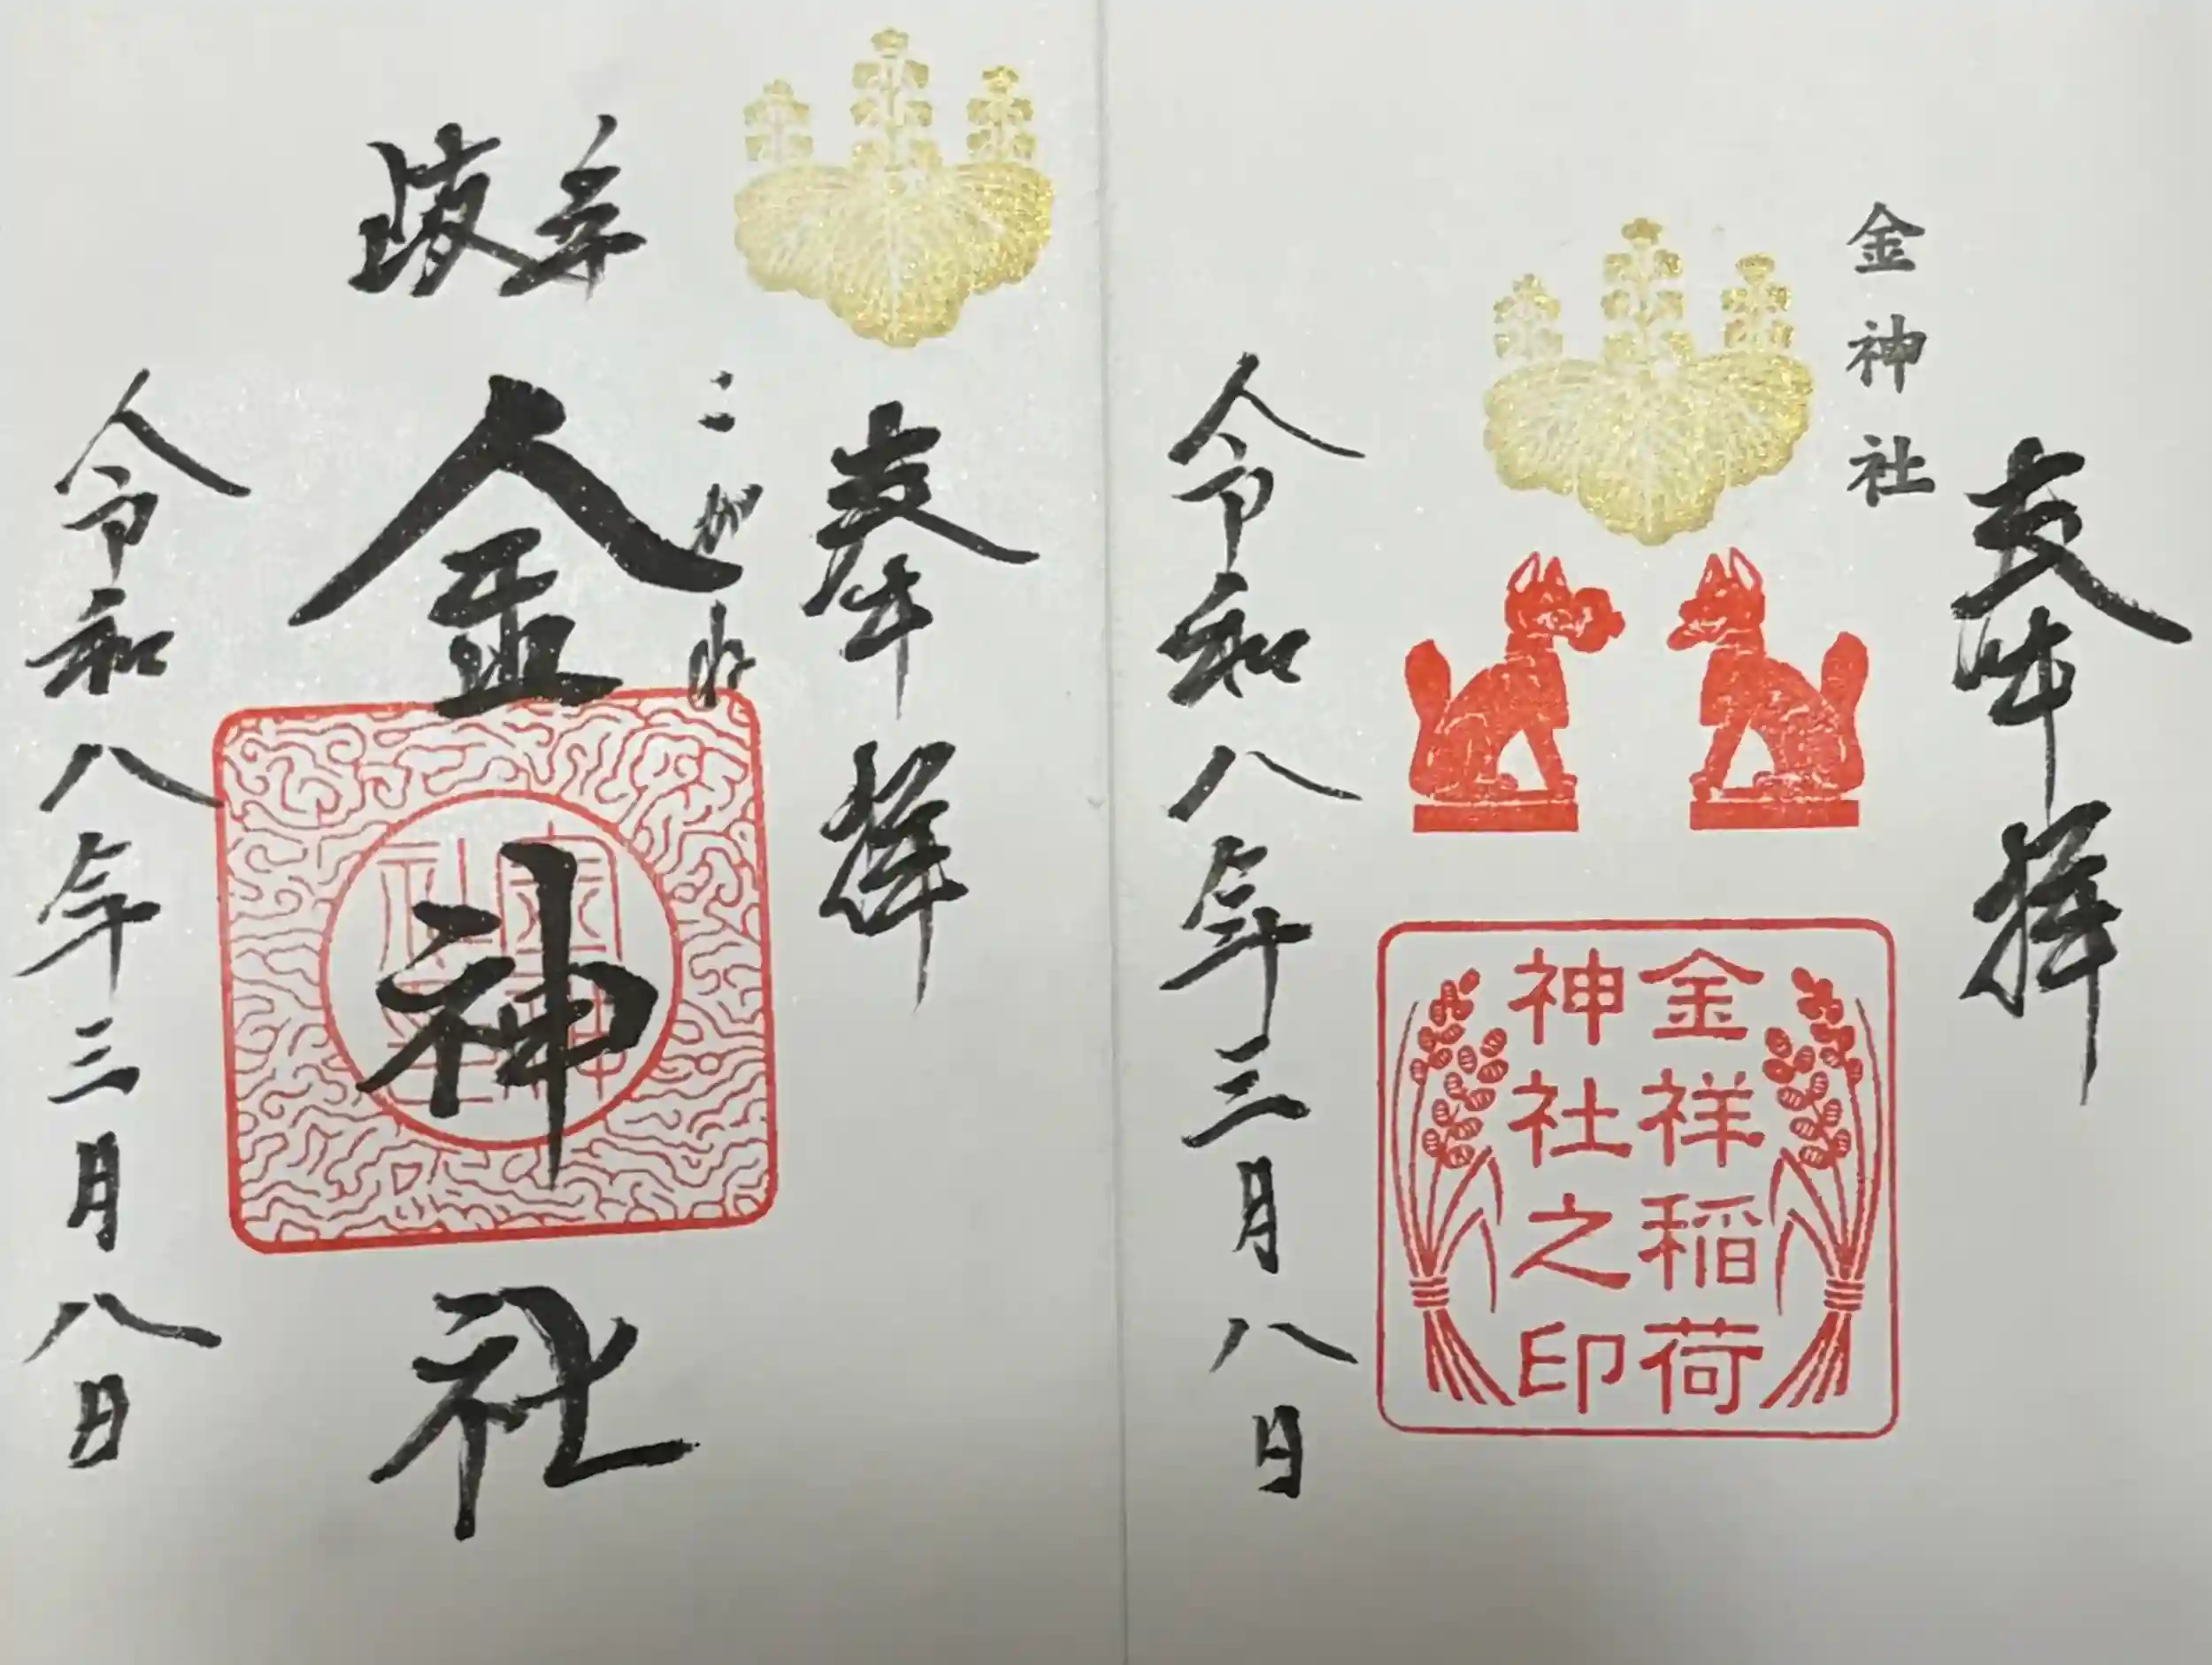 奉拝
金神社
金祥稲荷
神社之印
令和八年三月八日
奉拝
こがね
岐阜
金神社
令和八年三月八日